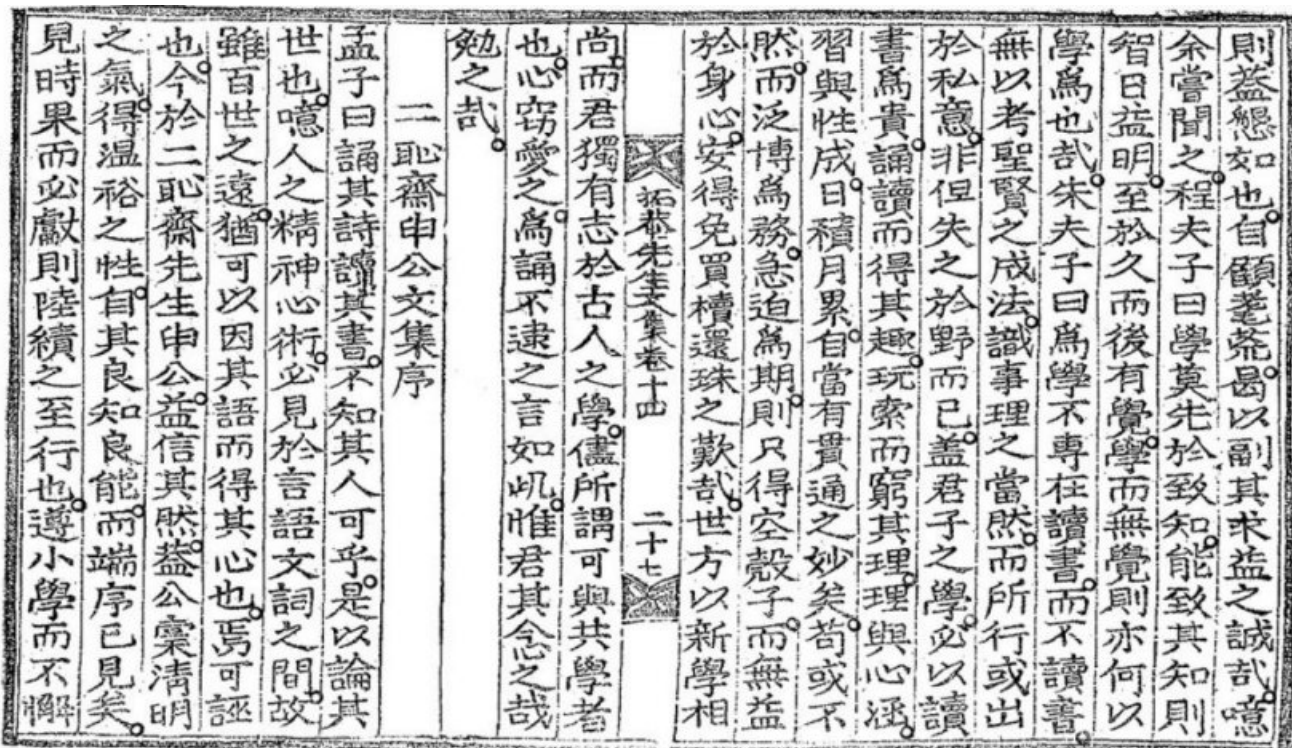 則益懇如也自顧耄荒曷以副其求益之誠哉噫
余嘗聞之程夫子曰學莫先於致知能致其知則
智日益明至於久而後有覺學而無覺則亦何以
學爲也哉朱夫子曰爲學不專在讀書而不讀書
無以考聖賢之成法識事理之當然而所行或出
於私意非但失之於野而已盖君子之學必以讀
書爲貴誦讀而得其趣玩索而窮其理理與心涵
習與性成日積月累自當有貫通之妙矣苟或不
然而泛博爲務急迫爲期則只得空殼子而無益
於身心安得免買櫝還珠之歎哉世方以新學相
拓菴先生文集卷十四 二十七
尚而君獨有志於古人之學儘所謂可與共學者
也心窃愛之爲誦不逮之言如此惟君其念之哉
勉之哉
二恥齋申公文集序
孟子曰誦其詩讀其書不知其人可乎是以論其
世也噫人之精神心術必見於言語文詞之間故
雖百世之遠猶可以因其語而得其心也焉可誣
也今於二恥齋先生申公益信其然益公稟淸明
之氣得溫裕之性自其良知良能而端序已見矣
見時果而必獻則陸績之至行也遵小學而不懈